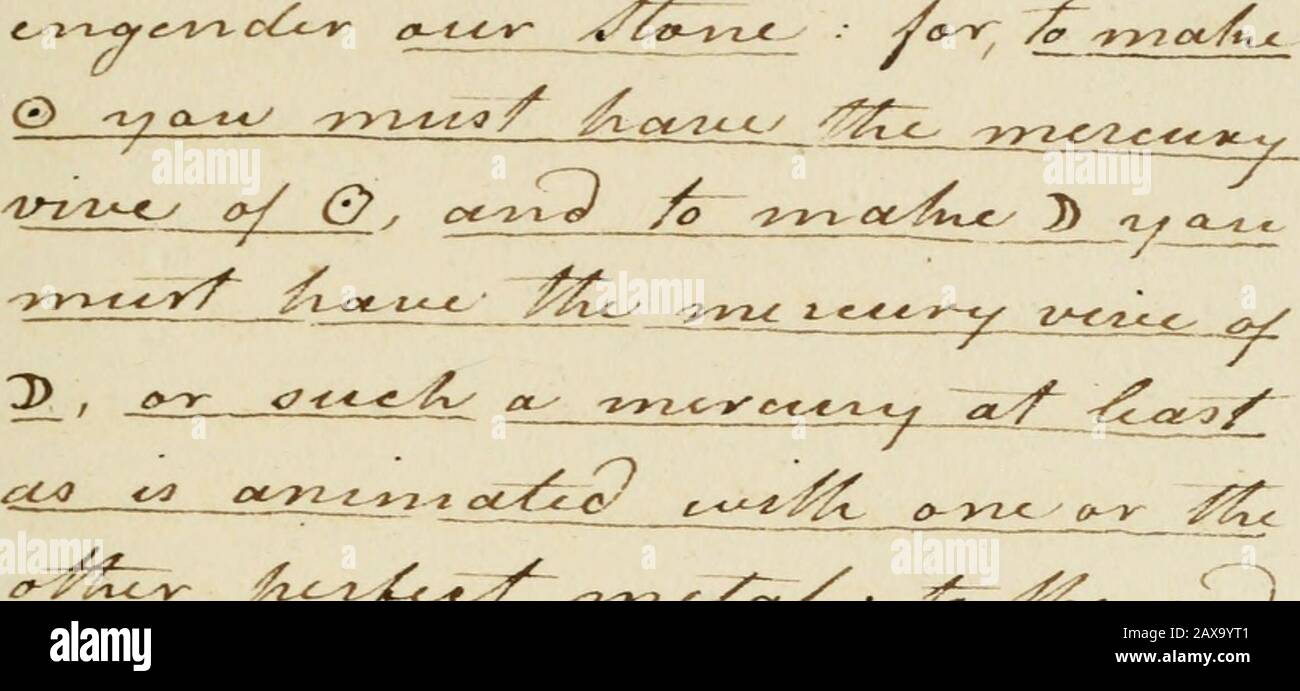 engender our Stone : for, to make
☉ you must have the mercury
vive of ☉, and to make ☽ you
must have the mercury vive of
☽, or such a mercury at least
as is animated with one or the
other perfect metal : to the
alamy
Image ID: 2AX9YT1
www.alamy.com